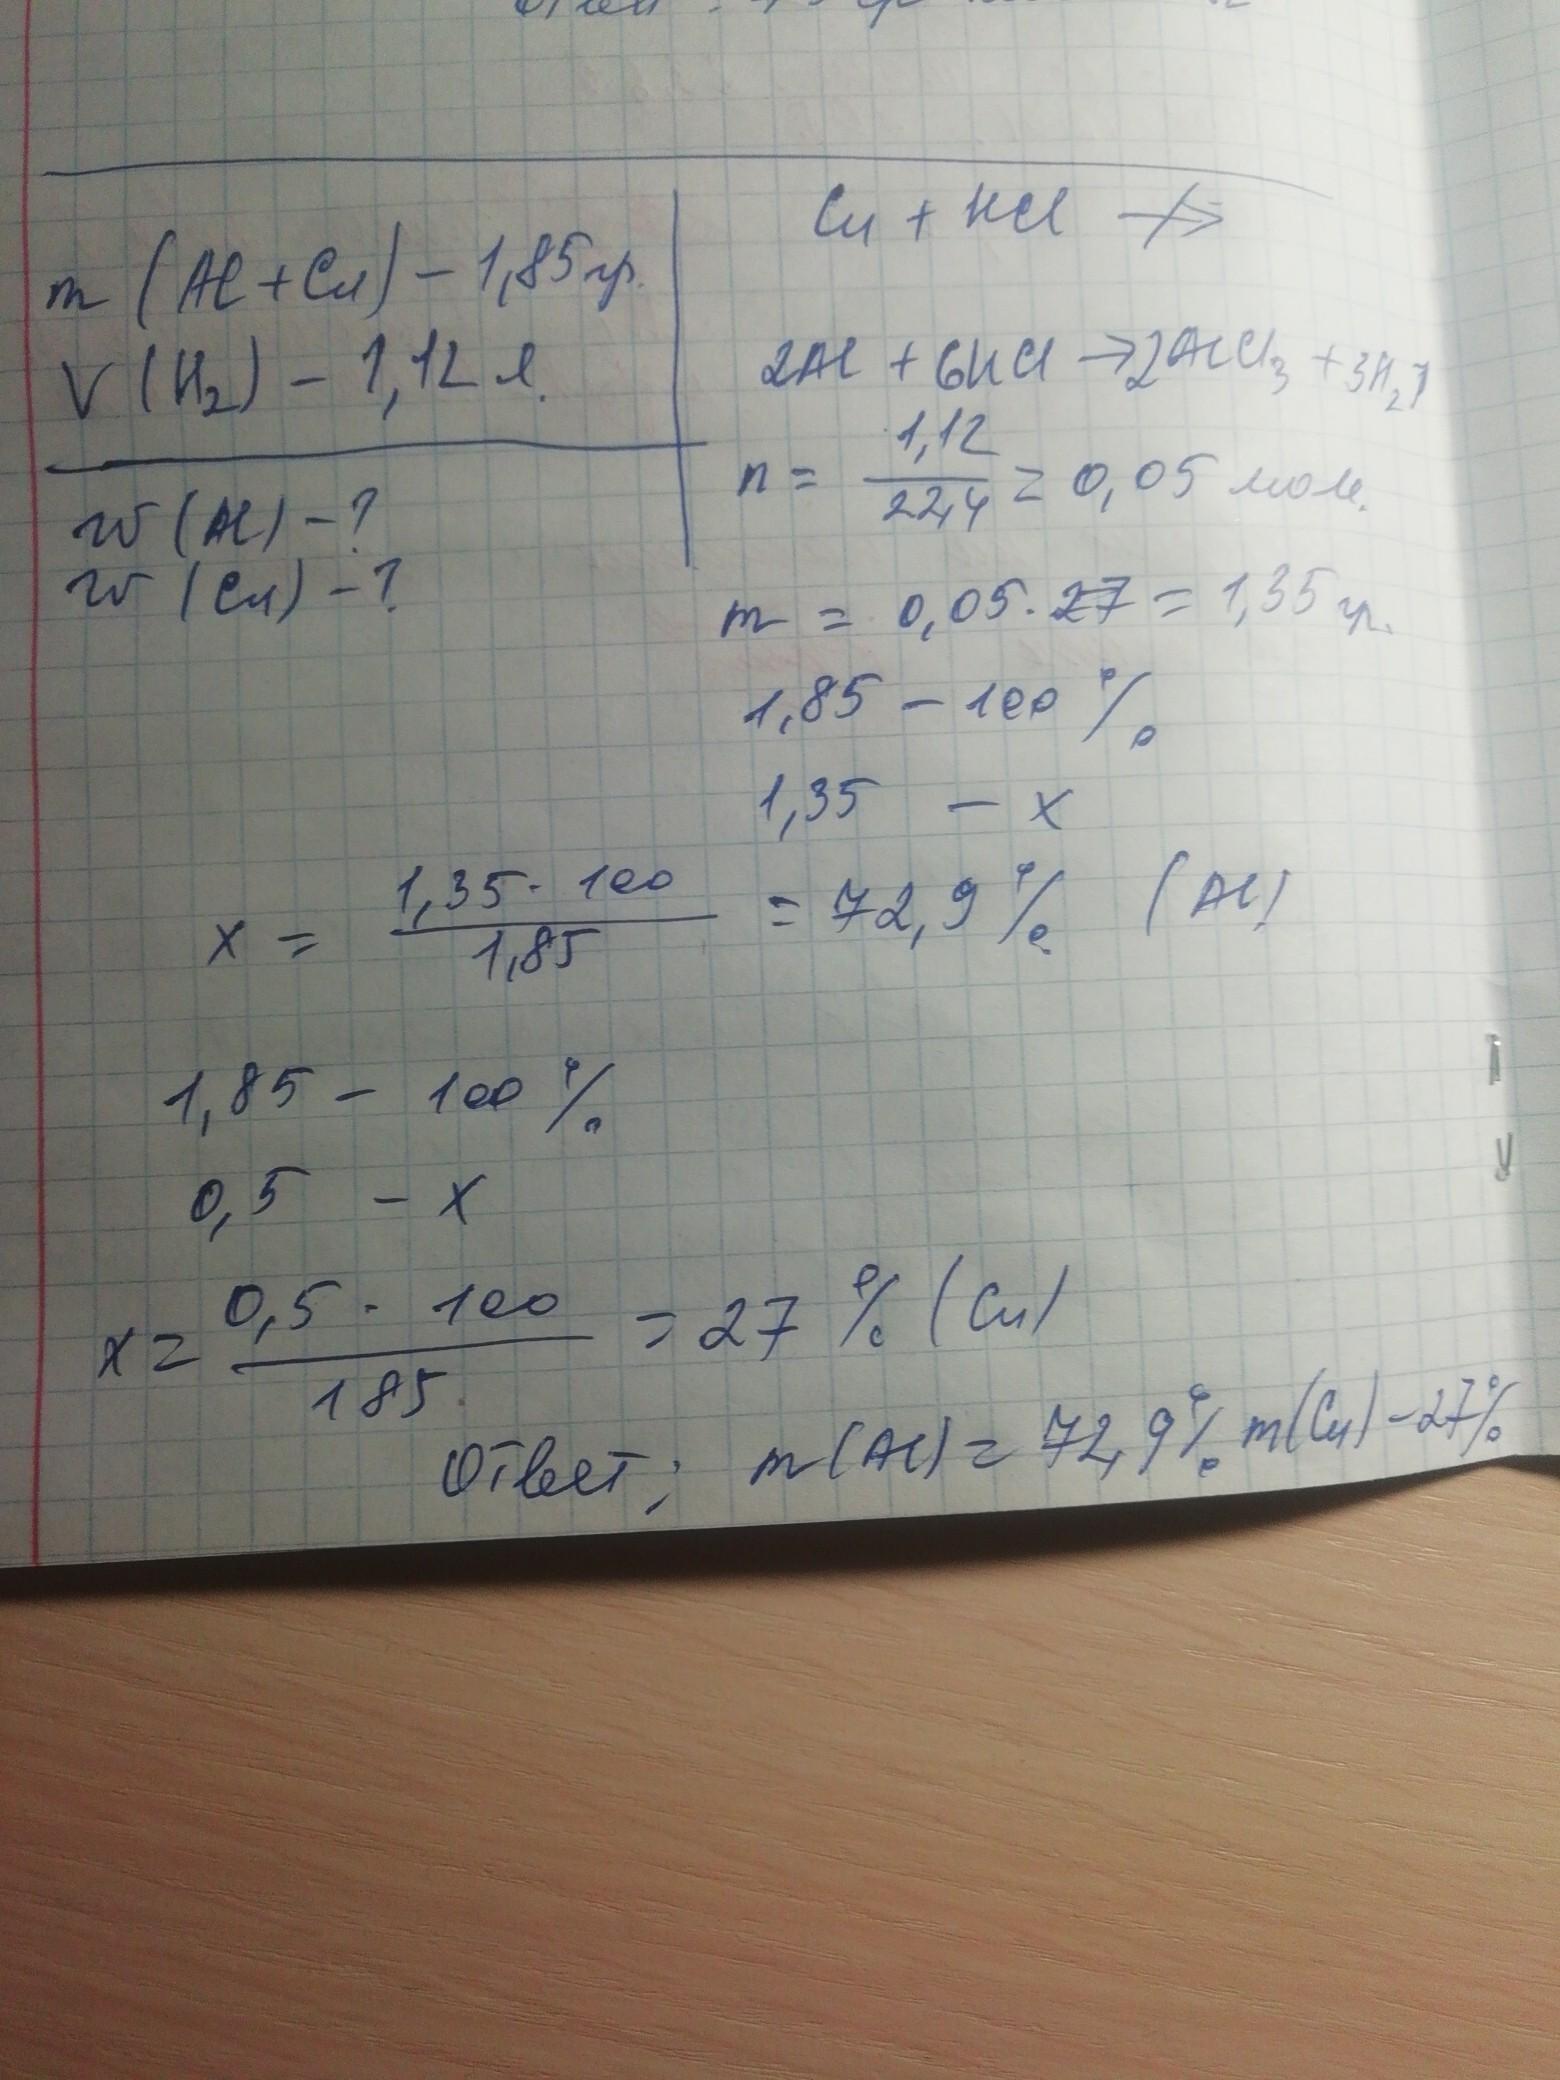 Ответ :
m (Al + Cu) – 1,85 гр.
V (H₂) – 1,12 л.
w (Al) – ?
w (Cu) – ?
Cu + HCl
2Al + 6HCl → 2AlCl₃ + 3H₂↑
n = 1,12 / 22,4 = 0,05 моль.
m = 0,05 · 27 = 1,35 гр.
1,85 – 100 %
1,35 – x
x = 1,35 · 100 / 1,85 = 72,9 % (Al)
1,85 – 100 %
0,5 – x
x = 0,5 · 100 / 185 = 27 % (Cu)
Ответ; m (Al) = 72,9% m(Cu) – 27%